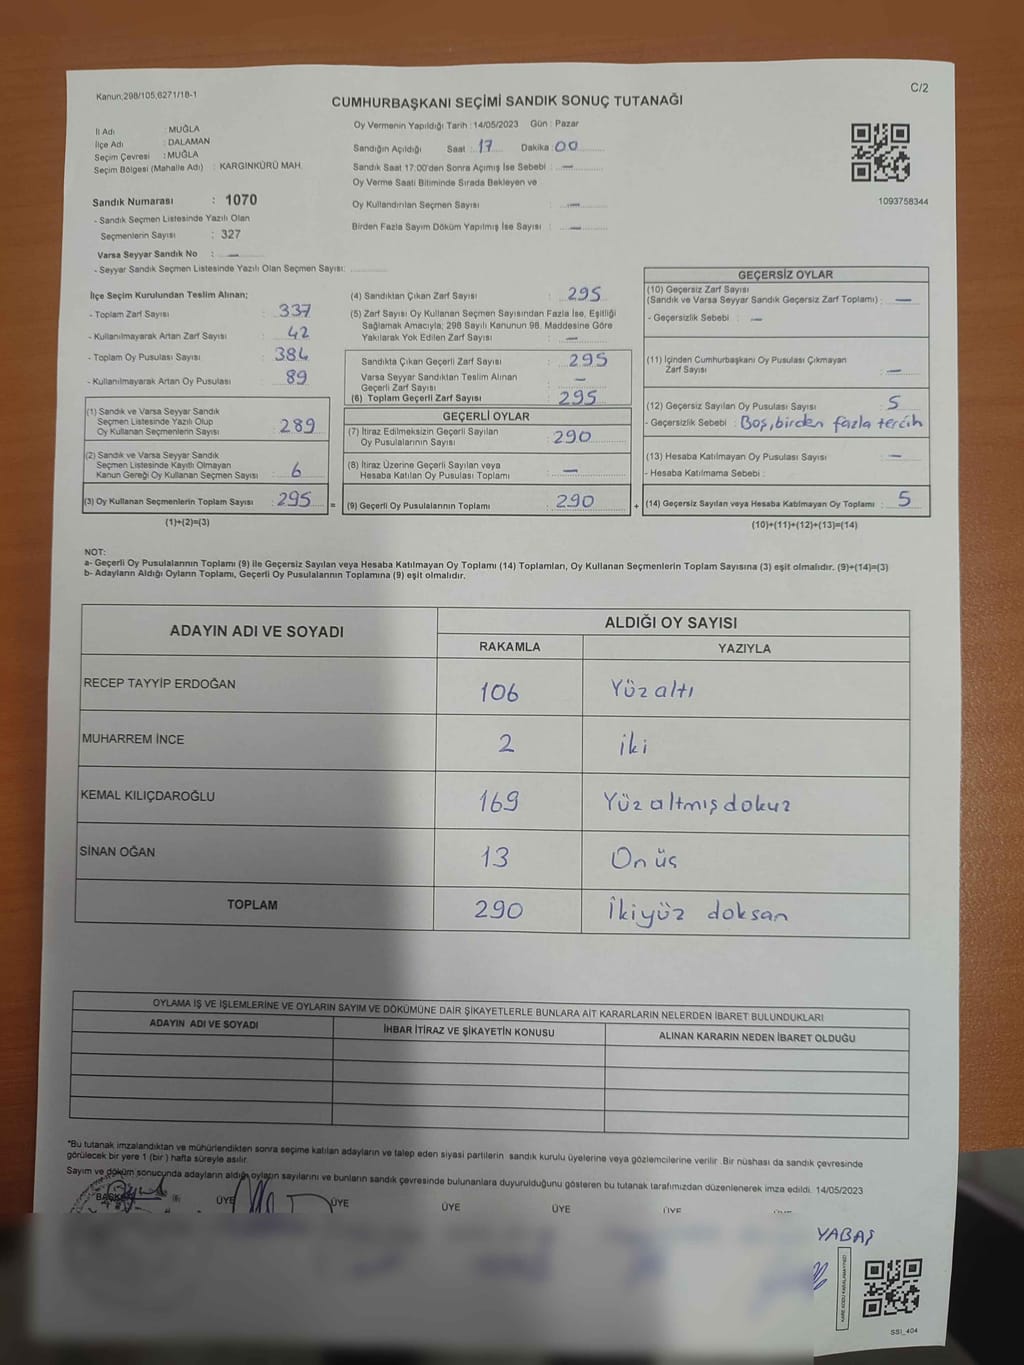 Kanun;298/105;6271/18-1
C/2
CUMHURBAŞKANI SEÇİMİ SANDIK SONUÇ TUTANAĞI
İl Adı : MUĞLA
İlçe Adı : DALAMAN
Seçim Çevresi : MUĞLA
Seçim Bölgesi (Mahalle Adı) : KARGINKÜRÜ MAH.
Sandık Numarası : 1070
- Sandık Seçmen Listesinde Yazılı Olan
Seçmenlerin Sayısı : 327
Varsa Seyyar Sandık No : —
- Seyyar Sandık Seçmen Listesinde Yazılı Olan Seçmen Sayısı:
Oy Vermenin Yapıldığı Tarih : 14/05/2023 Gün : Pazar
Sandığın Açıldığı Saat : 17 Dakika : 00
Sandık Saat 17:00'den Sonra Açımış İse Sebebi : —
Oy Verme Saati Bitiminde Sırada Bekleyen ve
Oy Kullandırılan Seçmen Sayısı : —
Birden Fazla Sayım Döküm Yapılmış İse Sayısı : —
1093758344
İlçe Seçim Kurulundan Teslim Alınan;
- Toplam Zarf Sayısı : 337
- Kullanılmayarak Artan Zarf Sayısı : 42
- Toplam Oy Pusulası Sayısı : 384
- Kullanılmayarak Artan Oy Pusulası : 89
(1) Sandık ve Varsa Seyyar Sandık
Seçmen Listesinde Yazılı Olup
Oy Kullanan Seçmenlerin Sayısı : 289
(2) Sandık ve Varsa Seyyar Sandık
Seçmen Listesinde Kayıtlı Olmayan
Kanun Gereği Oy Kullanan Seçmen Sayısı : 6
(3) Oy Kullanan Seçmenlerin Toplam Sayısı : 295
(1)+(2)=(3)
=
(4) Sandıktan Çıkan Zarf Sayısı : 295
(5) Zarf Sayısı Oy Kullanan Seçmen Sayısından Fazla İse, Eşitliği
Sağlamak Amacıyla; 298 Sayılı Kanunun 98. Maddesine Göre
Yakılarak Yok Edilen Zarf Sayısı : —
Sandıkta Çıkan Geçerli Zarf Sayısı : 295
Varsa Seyyar Sandıktan Teslim Alınan
Geçerli Zarf Sayısı : —
(6) Toplam Geçerli Zarf Sayısı : 295
GEÇERLİ OYLAR
(7) İtiraz Edilmeksizin Geçerli Sayılan
Oy Pusulalarının Sayısı : 290
(8) İtiraz Üzerine Geçerli Sayılan veya
Hesaba Katılan Oy Pusulası Toplamı : —
(9) Geçerli Oy Pusulalarının Toplamı : 290
+
GEÇERSİZ OYLAR
(10) Geçersiz Zarf Sayısı
(Sandık ve Varsa Seyyar Sandık Geçersiz Zarf Toplamı) : —
- Geçersizlik Sebebi : —
(11) İçinden Cumhurbaşkanı Oy Pusulası Çıkmayan
Zarf Sayısı : —
(12) Geçersiz Sayılan Oy Pusulası Sayısı : 5
- Geçersizlik Sebebi : Boş, birden fazla tercih
(13) Hesaba Katılmayan Oy Pusulası Sayısı : —
- Hesaba Katılmama Sebebi :
(14) Geçersiz Sayılan veya Hesaba Katılmayan Oy Toplamı : 5
(10)+(11)+(12)+(13)=(14)
NOT:
a- Geçerli Oy Pusulalarının Toplamı (9) ile Geçersiz Sayılan veya Hesaba Katılmayan Oy Toplamı (14) Toplamları, Oy Kullanan Seçmenlerin Toplam Sayısına (3) eşit olmalıdır. (9)+(14)=(3)
b- Adayların Aldığı Oyların Toplamı, Geçerli Oy Pusulalarının Toplamına (9) eşit olmalıdır.
ADAYIN ADI VE SOYADI
ALDIĞI OY SAYISI
RAKAMLA YAZIYLA
RECEP TAYYİP ERDOĞAN 106 Yüz altı
MUHARREM İNCE 2 iki
KEMAL KILIÇDAROĞLU 169 Yüz altmış dokuz
SİNAN OĞAN 13 On üç
TOPLAM 290 İkiyüz doksan
OYLAMA İŞ VE İŞLEMLERİNE VE OYLARIN SAYIM VE DÖKÜMÜNE DAİR ŞİKAYETLERLE BUNLARA AİT KARARLARIN NELERDEN İBARET BULUNDUKLARI
ADAYIN ADI VE SOYADI İHBAR İTİRAZ VE ŞİKAYETİN KONUSU ALINAN KARARIN NEDEN İBARET OLDUĞU
*Bu tutanak imzalandıktan ve mühürlendikten sonra seçime katılan adayların ve talep eden siyasi partilerin sandık kurulu üyelerine veya gözlemcilerine verilir .Bir nüshası da sandık çevresinde
görülecek bir yere 1 (bir ) hafta süreyle asılır.
Sayım ve döküm sonucunda adayların aldığı oyların sayılarını ve bunların sandık çevresinde bulunanlara duyurulduğunu gösteren bu tutanak tarafımızdan düzenlenerek imza edildi. 14/05/2023
BAŞKAN ÜYE ÜYE ÜYE ÜYE ÜYE
YABAŞ
SSI_404